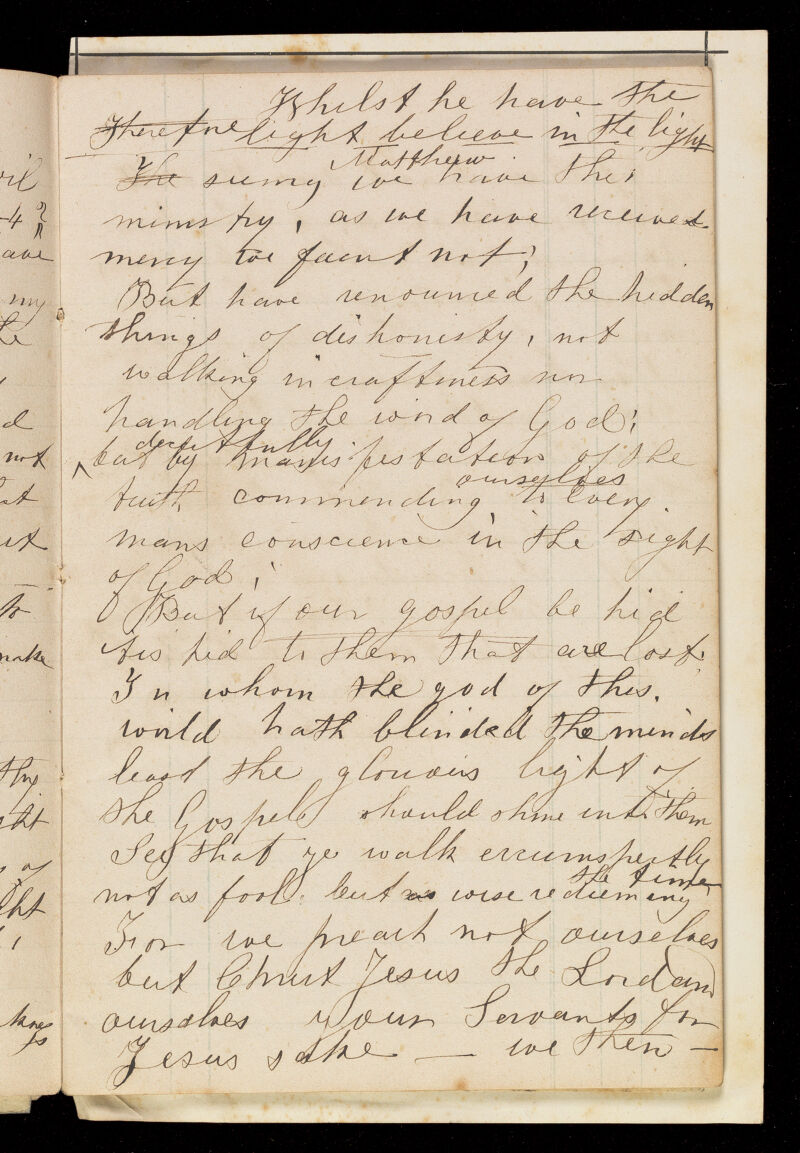 Whilst he have the
Therefore light believe in the light
Matthew
The seeing we have the
ministry, as we have received
mercy we faent not;
But have renounced the hidden
things of dishonesty, not
walking in craftiness nor
handling the word of God;
deceitfully
but by manifestation of the
ourselves
truth commending to every
mans conscience in the sight
of God;
But if our gospel be hid
tis hid to them that are lost.
In whom the god of this
world hath blinded the minds
least the glorious light of
the Gospel should shine into them
See that ye walk circumspectly
the time
not as fools but as wise redieming
For we preach not ourselves
but Christ Jesus the Lord and
ourselves your Servants for
Jesus sake — we then —
vil
-4
ave
my
he
d
not
at
ut
to
make
this
ght
of
ght